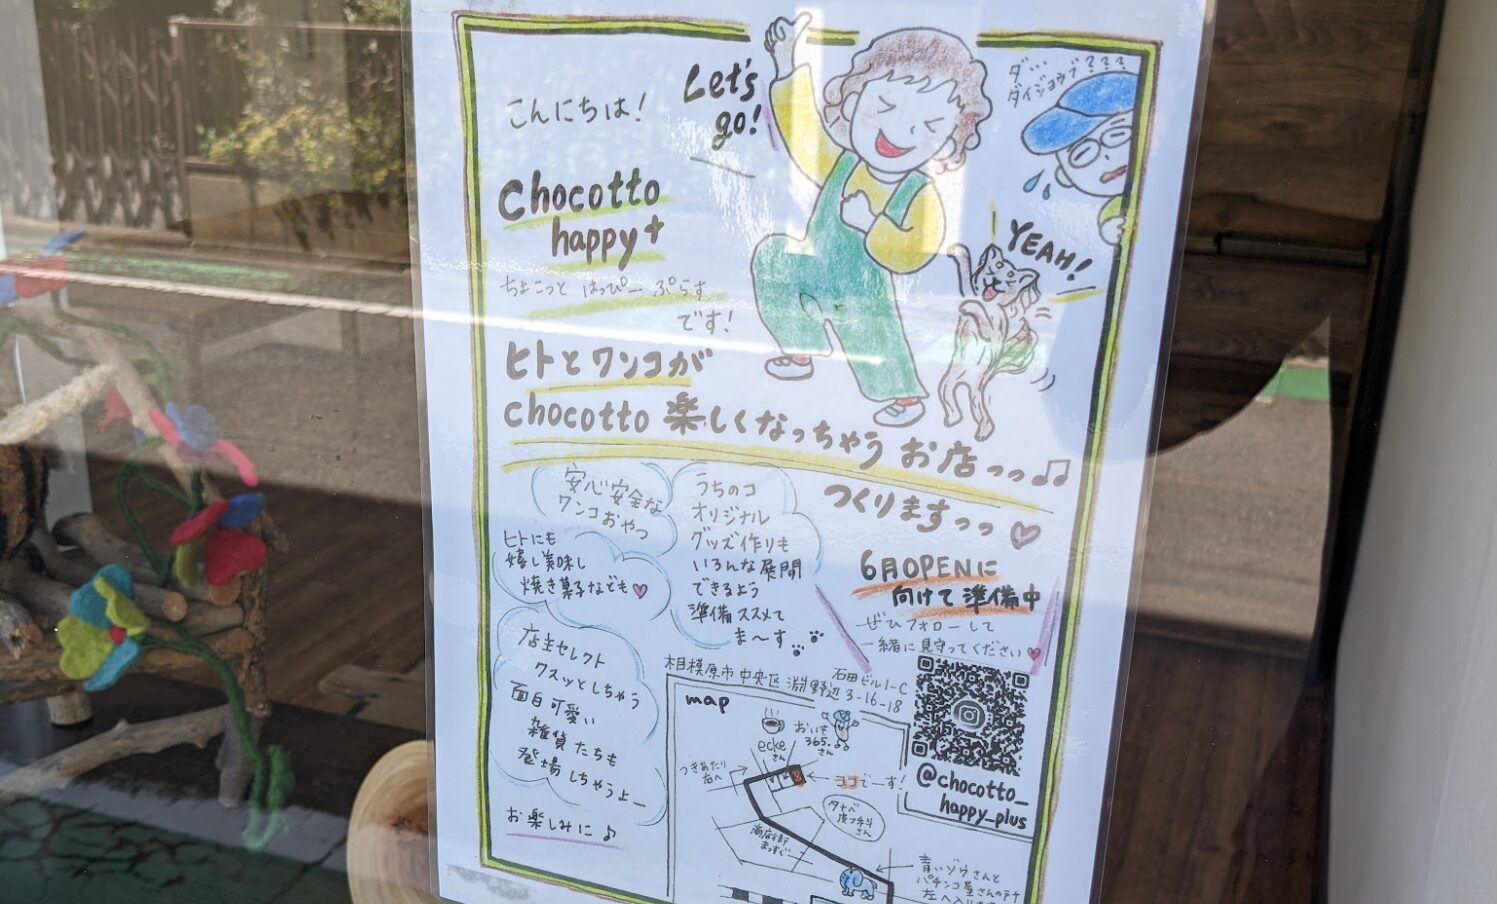 こんにちは!
Let's
go!
ダ…
ダイジョウブ???
YEAH!
chocotto
happy+
ちょこっと はっぴー ぷらす
です!
ヒトとワンコが
chocotto 楽しくなっちゃう お店っっ♫
つくりますっっ♡
安心安全な
ワンコおやつ
ヒトにも
嬉し美味し
焼き菓子なども♡
うちのコ
オリジナル
グッズ作りも
いろんな展開
できるよう
準備ススメて
ま〜す
6月OPENに
向けて準備中
ぜひフォローして
一緒に見守ってください♥
店主セレクト
クスッとしちゃう
面白可愛い
雑貨たちも
登場しちゃうよー
お楽しみに♪
相模原市中央区淵野辺3-16-18
石田ビル1-C
@chocotto_
happy_plus
map
ecke
さん
おいも
365.
さん
つきあたり
右へ
ココでーす!
タナベ
皮フ科
さん
商店街
まっすぐ
青いゾウさんと
パチンコ屋さんの